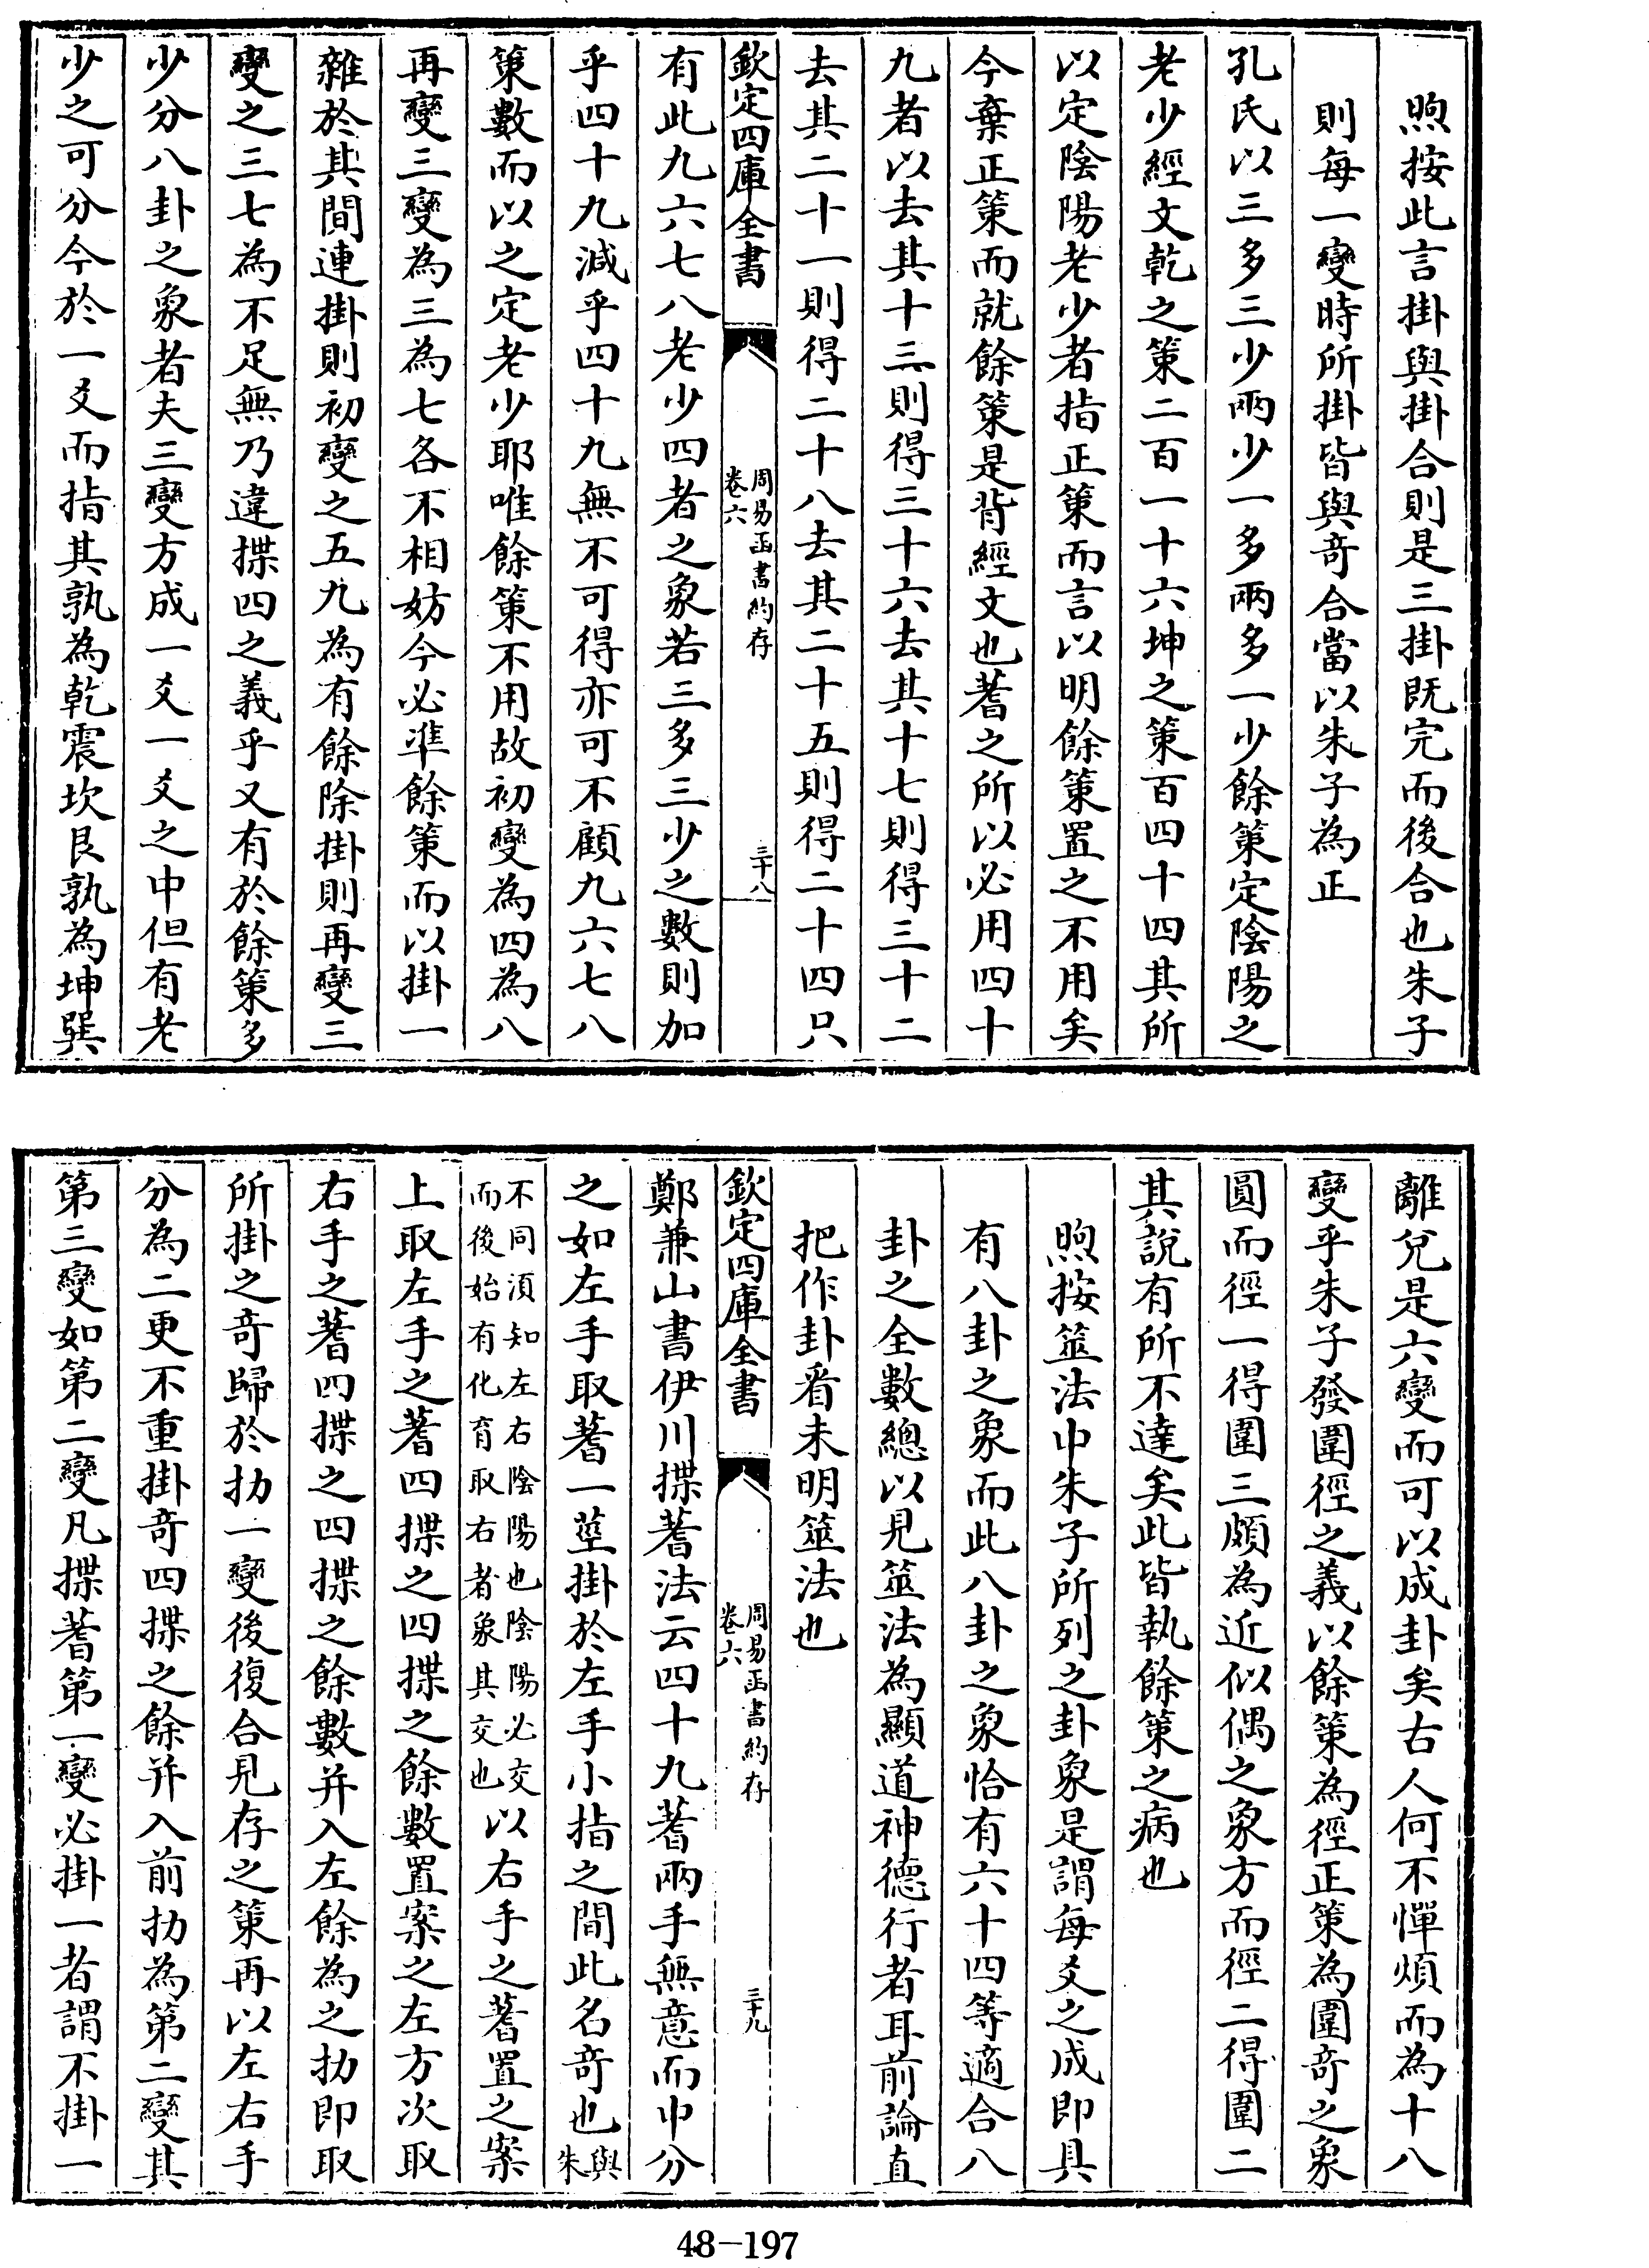 煦按此言掛與掛合則是三掛既完而後合也朱子
則每一變時所掛皆與奇合當以朱子為正
孔氏以三多三少兩少一多兩多一少餘策定陰陽之
老少經文乾之策二百一十六坤之策百四十四其所
以定陰陽老少者指正策而言以明餘策置之不用矣
今棄正策而就餘策是背經文也蓍之所以必用四十
九者以去其十三則得三十六去其十七則得三十二
去其二十一則得二十八去其二十五則得二十四只
欽定四庫全書
周易函書約存
卷六
三十八
有此九六七八老少四者之象若三多三少之數則加
乎四十九減乎四十九無不可得亦可不顧九六七八
策數而以之定老少耶唯餘策不用故初變為四為八
再變三變為三為七各不相妨今必準餘策而以掛一
雜於其間連掛則初變之五九為有餘除掛則再變三
變之三七為不足無乃違揲四之義乎又有於餘策多
少分八卦之象者夫三變方成一爻一爻之中但有老
少之可分今於一爻而指其孰為乾震坎艮孰為坤巽
離兌是六變而可以成卦矣古人何不憚煩而為十八
變乎朱子發圍徑之義以餘策為徑正策為圍奇之象
圓而徑一得圍三頗為近似偶之象方而徑二得圍二
其說有所不達矣此皆執餘策之病也
煦按筮法中朱子所列之卦象是謂每爻之成即具
有八卦之象而此八卦之象恰有六十四等適合八
卦之全數總以見筮法為顯道神德行者耳前論直
把作卦看未明筮法也
欽定四庫全書
周易函書約存
卷六
三十九
鄭兼山書伊川揲蓍法云四十九蓍兩手無意而中分
之如左手取蓍一莖掛於左手小指之間此名奇也與朱
不同須知左右陰陽也陰陽必交
而後始有化育取右者象其交也以右手之蓍置之案
上取左手之蓍四揲之四揲之餘數置案之左方次取
右手之蓍四揲之四揲之餘數并入左餘為之扐即取
所掛之奇歸於扐一變後復合見存之策再以左右手
分為二更不重掛奇四揲之餘并入前扐為第二變其
第三變如第二變凡揲蓍第一變必掛一者謂不掛一
48-197